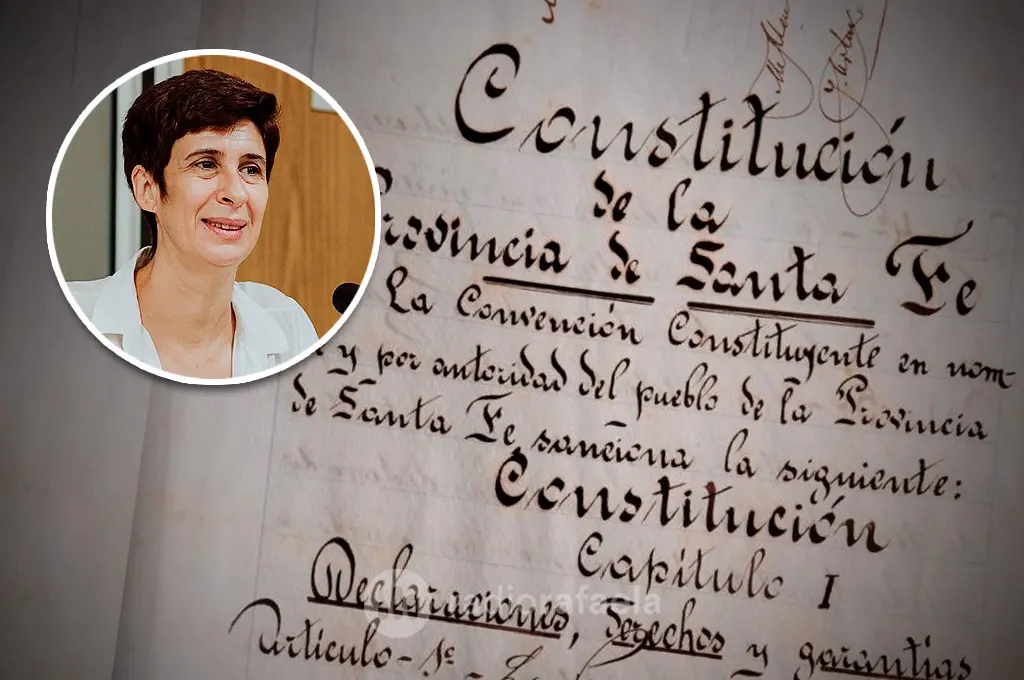 Constitución
de la
Provincia de Santa Fe
La Convención Constituyente en nom-
y por autoridad del pueblo de la Provincia
de Santa Fe, sanciona la siguiente:
Constitución
Capítulo I
radiorafaela
Declaraciones, Derechos y garantías
Artículo-1º-